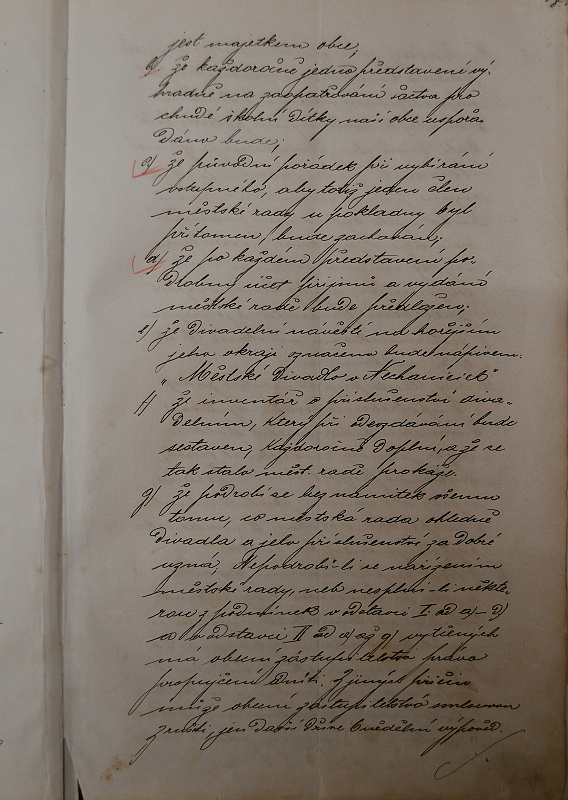 jest majetkem obce;
b) že každoročně jedno představení vý-
hradně na zaopatřování šactva pro
chudé školní dítky naší obce uspořá-
dáno bude;
c) že původní pořádek při vybírání
vstupného, aby totiž jeden člen
městské rady u pokladny byl
přítomen, bude zachován;
d) že po každém představení po-
drobný účet příjmů a vydání
městské radě bude předložen;
e) že divadelní návěstí na hořejším
jeho okraji označeno bude nápisem:
"Městské divadlo v Nechanicích"
f) že inventář o příslušenství diva-
delním, který při odevzdávání bude
sestaven, každoročně doplní, a že se
tak stalo měst. radě prokáže.
g) že podrobí se bez námitek všemu
tomu, co městská rada ohledně
divadla a jeho příslušenství za dobré
uzná, Nepodrobí-li se nařízením
městské rady, neb nesplní-li někte-
rou z podmínek v odstavci I. ad a)-d)
a v odstavci II ad a) až g) vytčených
má obecní zastupitelstvo právo
propůjčení zrušiti. Z jiných příčin
může obecní zastupitelstvo smlouvu
zrušiti, jen dá-li dříve 6 nedělní výpověď.